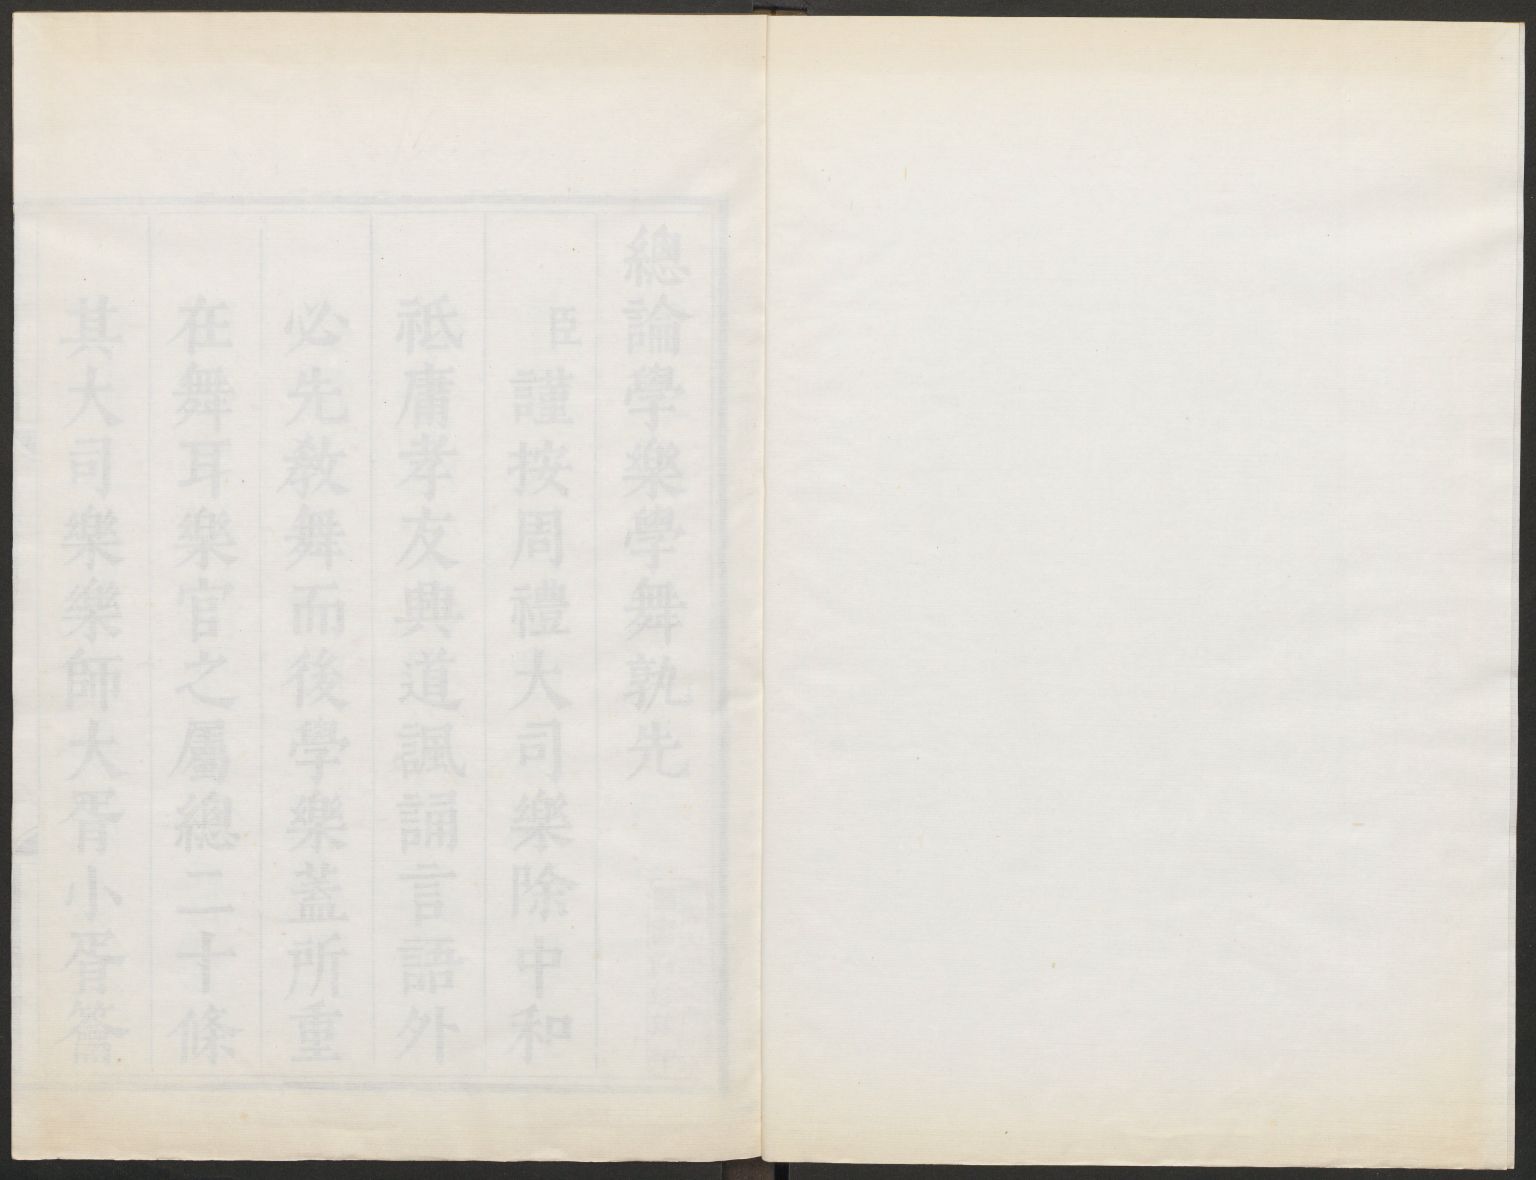 總論學樂學舞孰先
臣謹按周禮大司樂除中和
祗庸孝友興道諷誦言語外
必先敎舞而後學樂蓋所重
在舞耳樂官之屬總二十條
其大司樂樂師大胥小胥籥